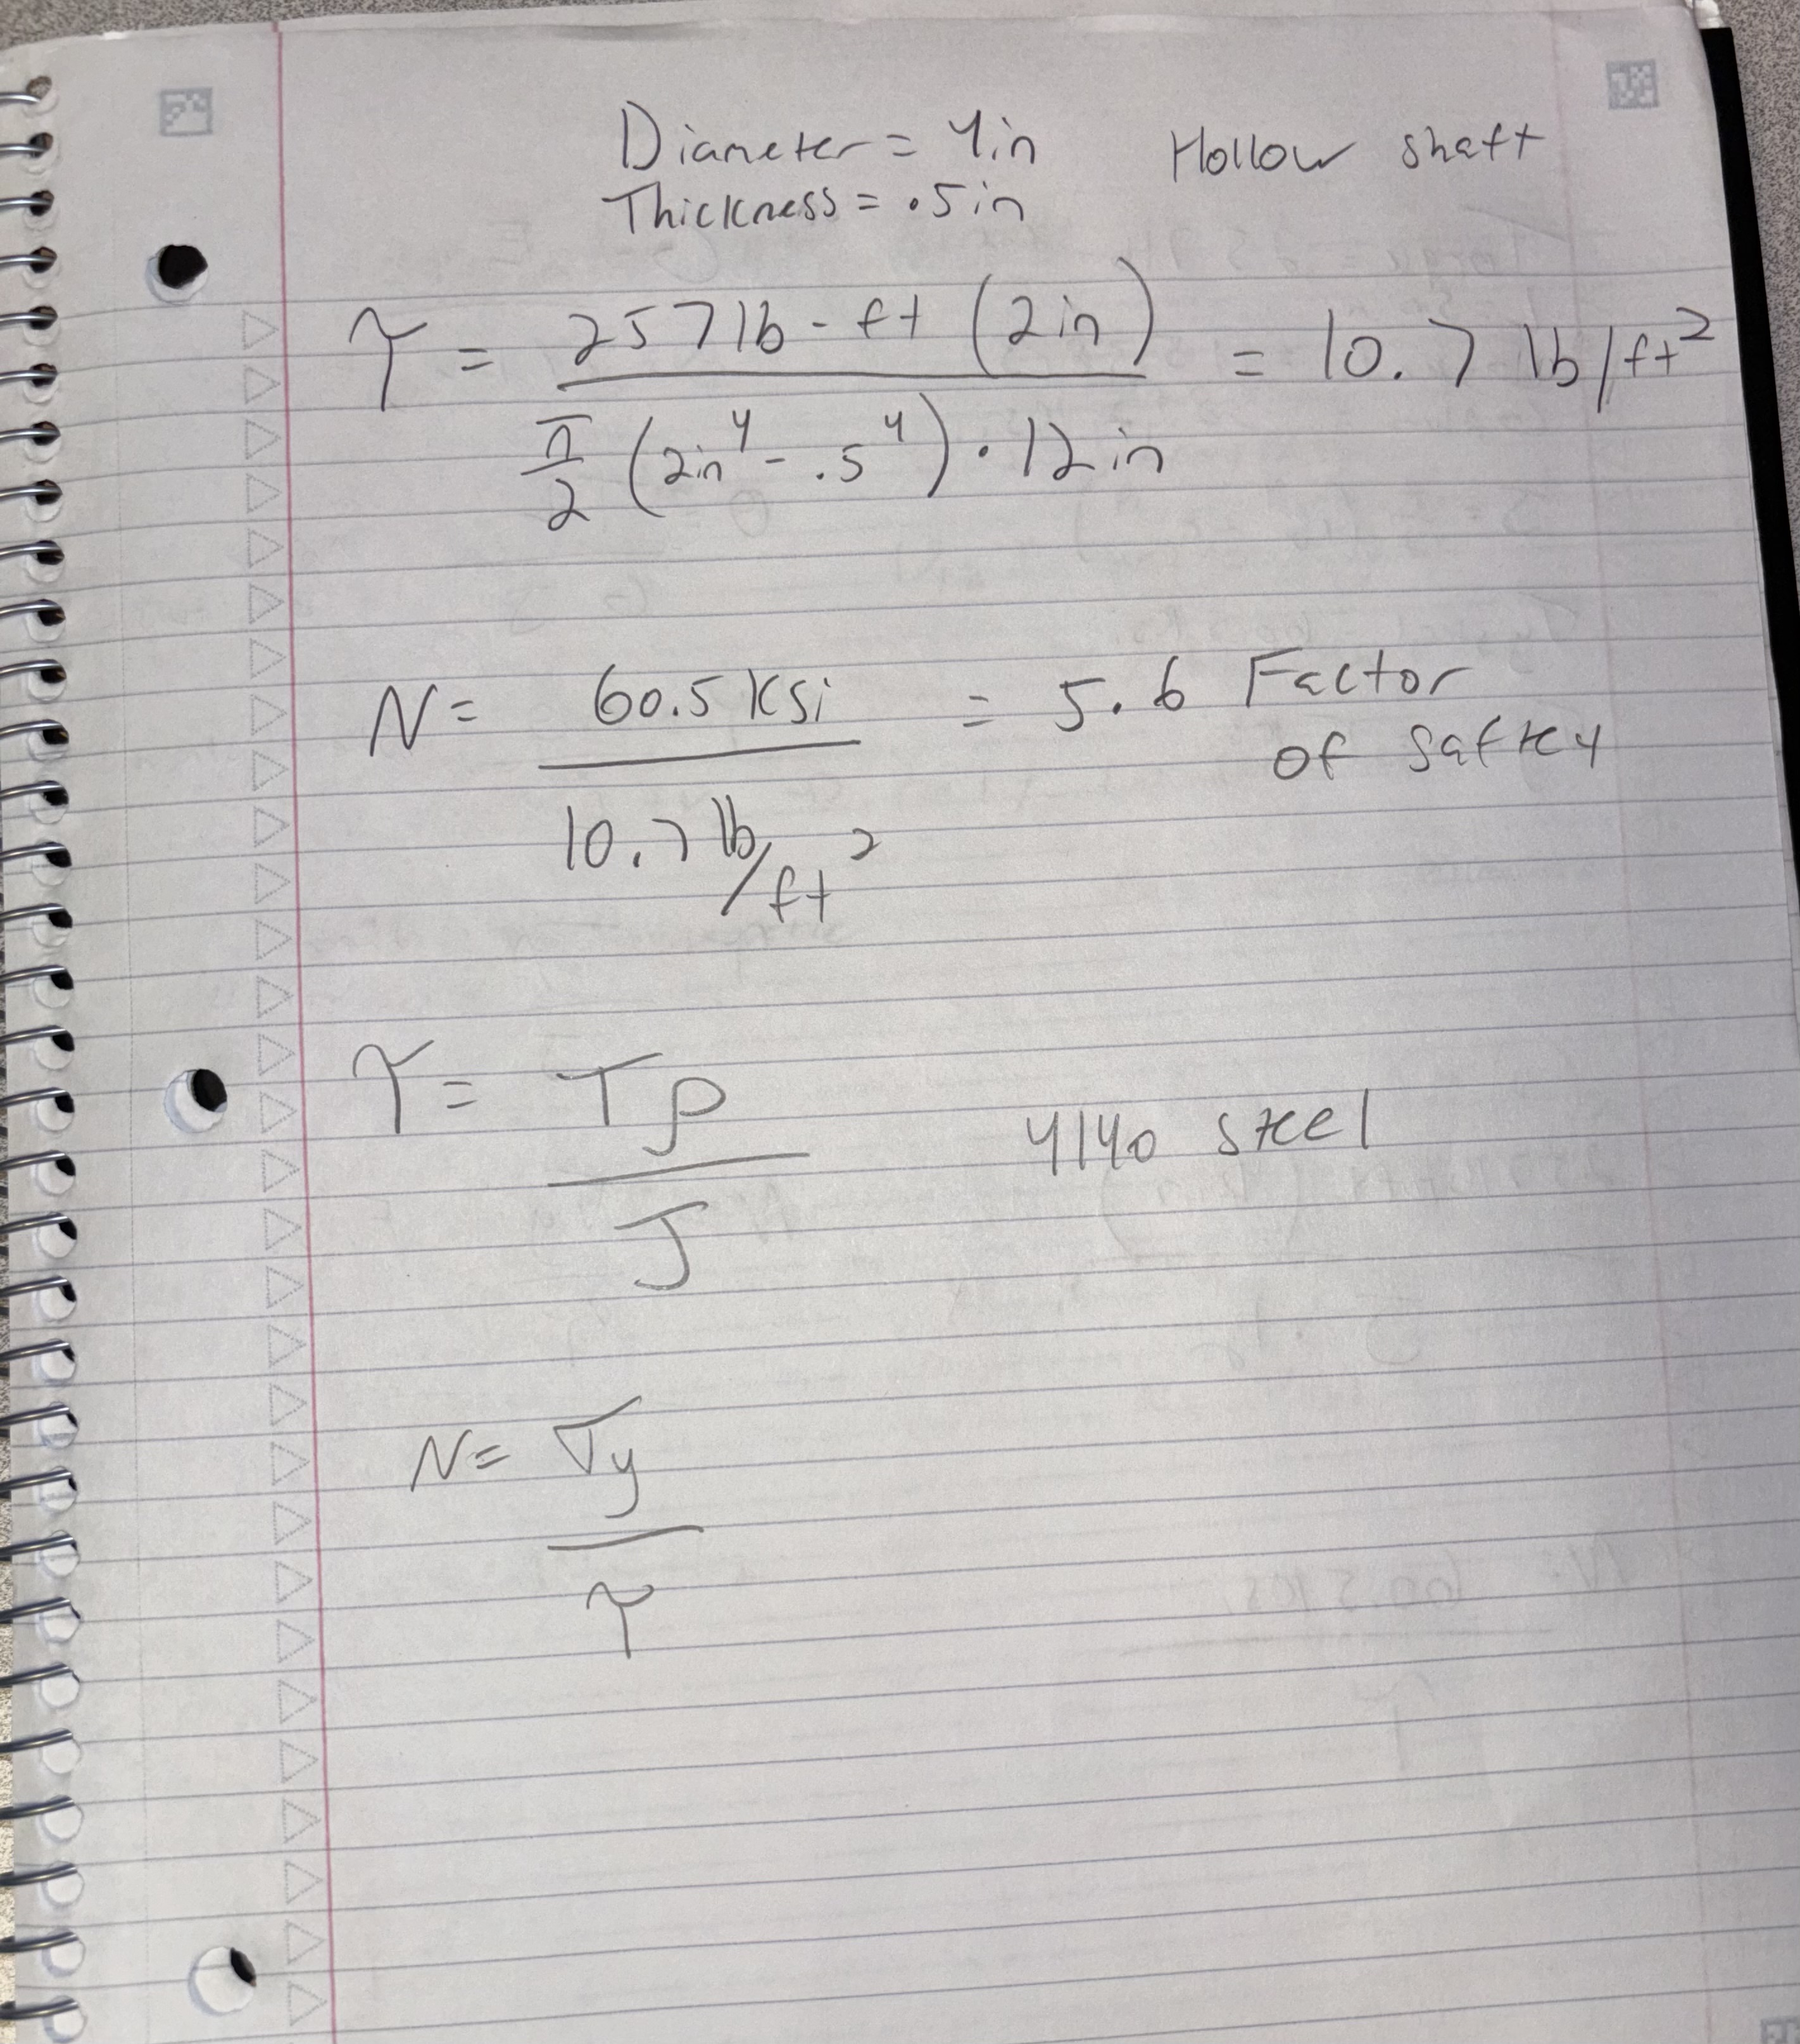 Diameter = 4in Hollow shaft
Thickness = .5in
τ = 257 lb-ft (2in) / π/2 (2in⁴ - .5⁴) · 12in = 10.7 lb/ft²
N = 60.5 ksi / 10.7 lb/ft² = 5.6 Factor
of saftey
τ = Tρ / J 4140 steel
N = σy / τ